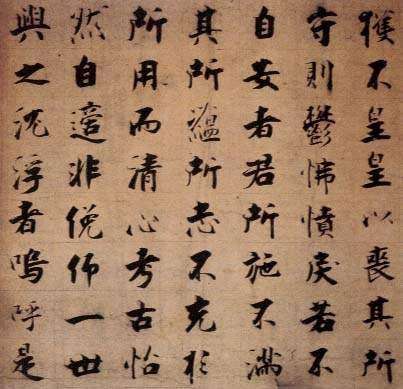 獲不皇皇以喪其所
守則鬱怫憤戾若不
自安者君所施不滿
其所蘊所志不克於
所用而清心考古怡
然自適非俛仰一世
與之沈浮者嗚呼是